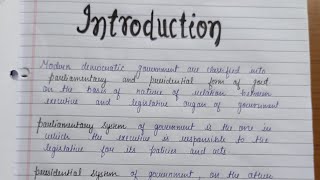 Introduction
Modern democratic government are classified into
parliamentary and presidential form of govt
on the basis of nature of relation between
executive and legislative organ of government
parliamentary system of government is the one in
which the executive is responsible to the
legislative for its policies and acts
presidential system of government, on the other